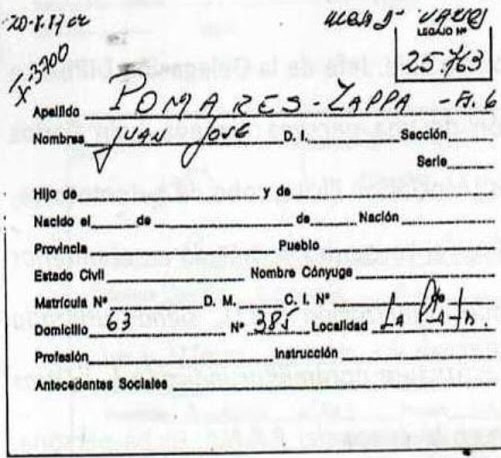 20-X-1962 Mesa D Varios
LEGAJO Nº
25.763
X-3200
Apellido POMARES-ZAPPA -Fi. 6
Nombres JUAN José D. I. Sección
Serie
Hijo de y de
Nacido el de de Nación
Provincia Pueblo
Estado Civil Nombre Cónyuge
Matrícula Nº D. M. C. I. Nº de
Domicilio 63 Nº 385 Localidad La Plata.
Profesión Instrucción
Antecedentes Sociales